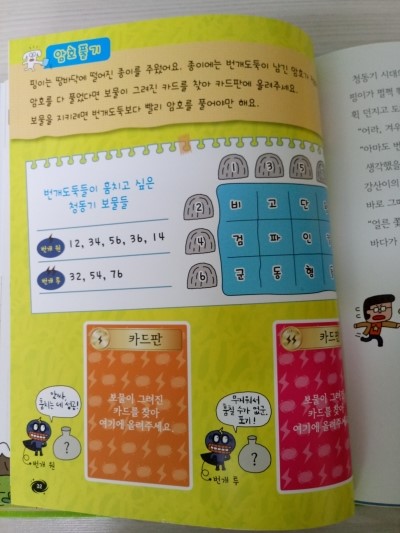 암호 풀기
핑이는 땅바닥에 떨어진 종이를 주웠어요. 종이에는 번개도둑이 남긴 암호가
암호를 다 풀었다면 보물이 그려진 카드를 찾아 카드판에 올려주세요.
보물을 지키려면 번개도둑보다 빨리 암호를 풀어야만 해요.
번개도둑들이 훔치고 싶은
청동기 보물들
번개 원 12, 34, 56, 36, 14
번개 투 32, 54, 76
1 3 5
2 비 고 단
4 검 파 인
6 군 동 형
카드판
보물이 그려진
카드를 찾아
여기에 올려주세요
번개 원
?
카드판
보물이 그려진
카드를 찾아
여기에 올려주세요
무거워서
훔칠 수가 없군.
포기!
번개 투
?
32
청동기 시대
핑이가 벌떡
휙 던지고 도
"어라, 겨우
"아마도 번
생각했을
강산이의
바로 그때
"얼른 쫓
바다가